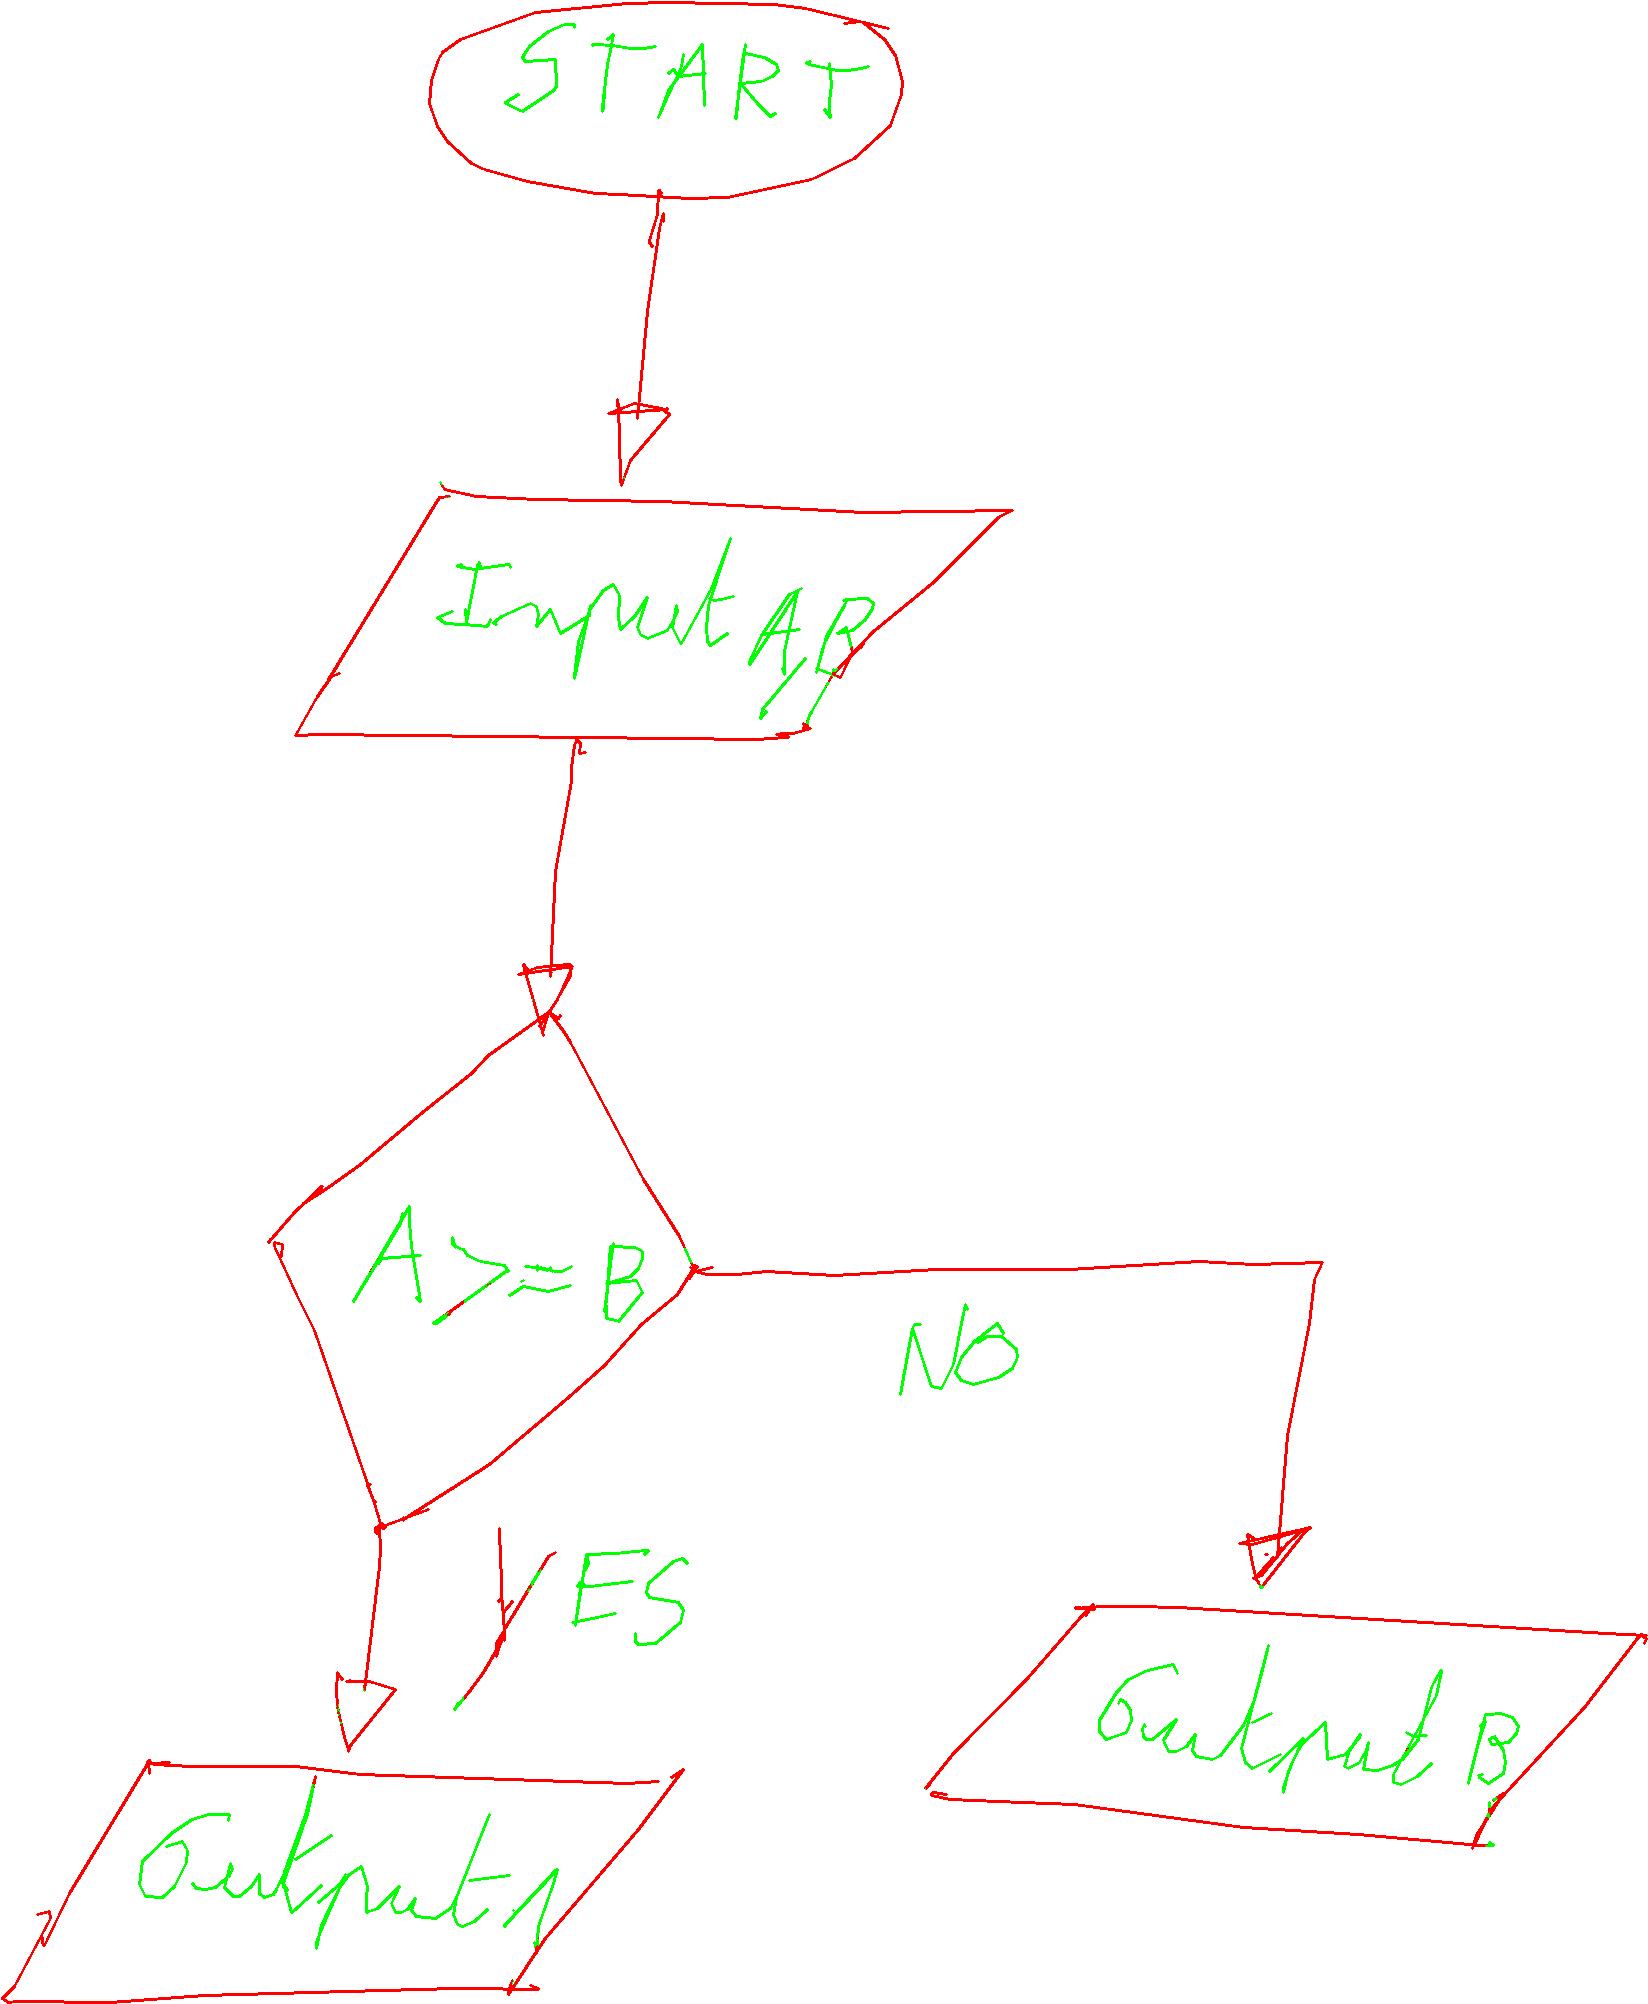 START
Input A, B
A >= B
NO
YES
Output B
Output